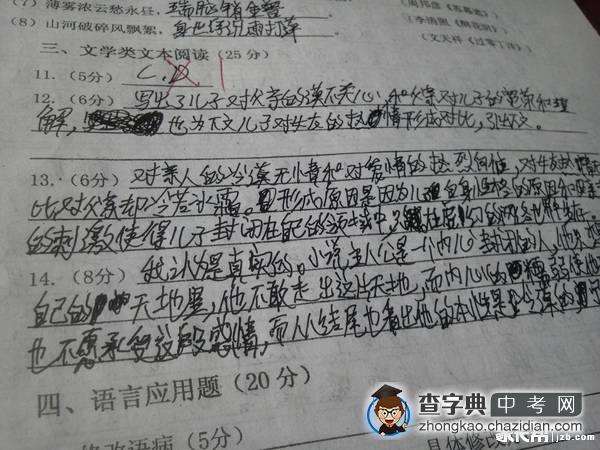 (7) 薄雾浓云愁永昼，瑞脑销金兽
(8) 山河破碎风飘絮，身世浮沉雨打萍
(李清照《醉花阴》)
(文天祥《过零丁洋》)
三、文学类文本阅读 (25分)
11. (5分) C.D
12. (6分) 写出了儿子对父亲的漠不关心，和父亲对儿子的
解，也为下文儿子对女友的热情形成对比，引出下文。
13. (6分) 对亲人的冷漠无情和对爱情的热烈向往，对女友
比对父亲却冷若冰霜。形成原因是因为儿子自身性格的原因和
的刺激使得儿子封闭在自己的领域中，
14. (8分) 我认为是真实的。小说主人公是一个内心封闭的人，他
自己的天地里，他不敢走出这片天地，而内心的懦弱使他
也不愿承受这段感情。而从结尾也看出他的本性是冷漠的
四、语言应用题 (20分)
修改语病 (5分)
查字典 中考网
zhongkao.chazidian.com
jzb.com